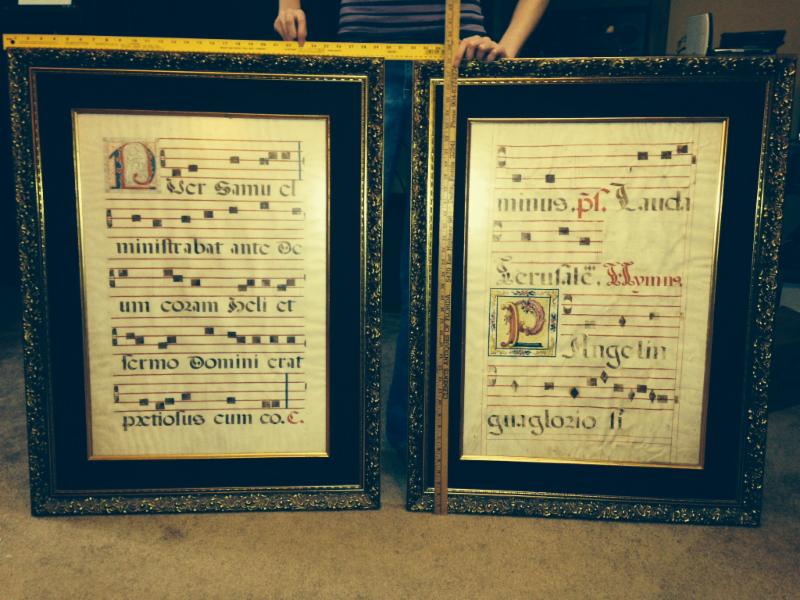 PUer Samu el
ministrabat ante De
um coram Heli et
sermo Domini erat
pretiosus cum eo. C.
minus. ps. Lauda
Ierusalē. Hymnus
PAnge lin
gua glorio si
CLEMENTS ANTIQUES OF FLORIDA